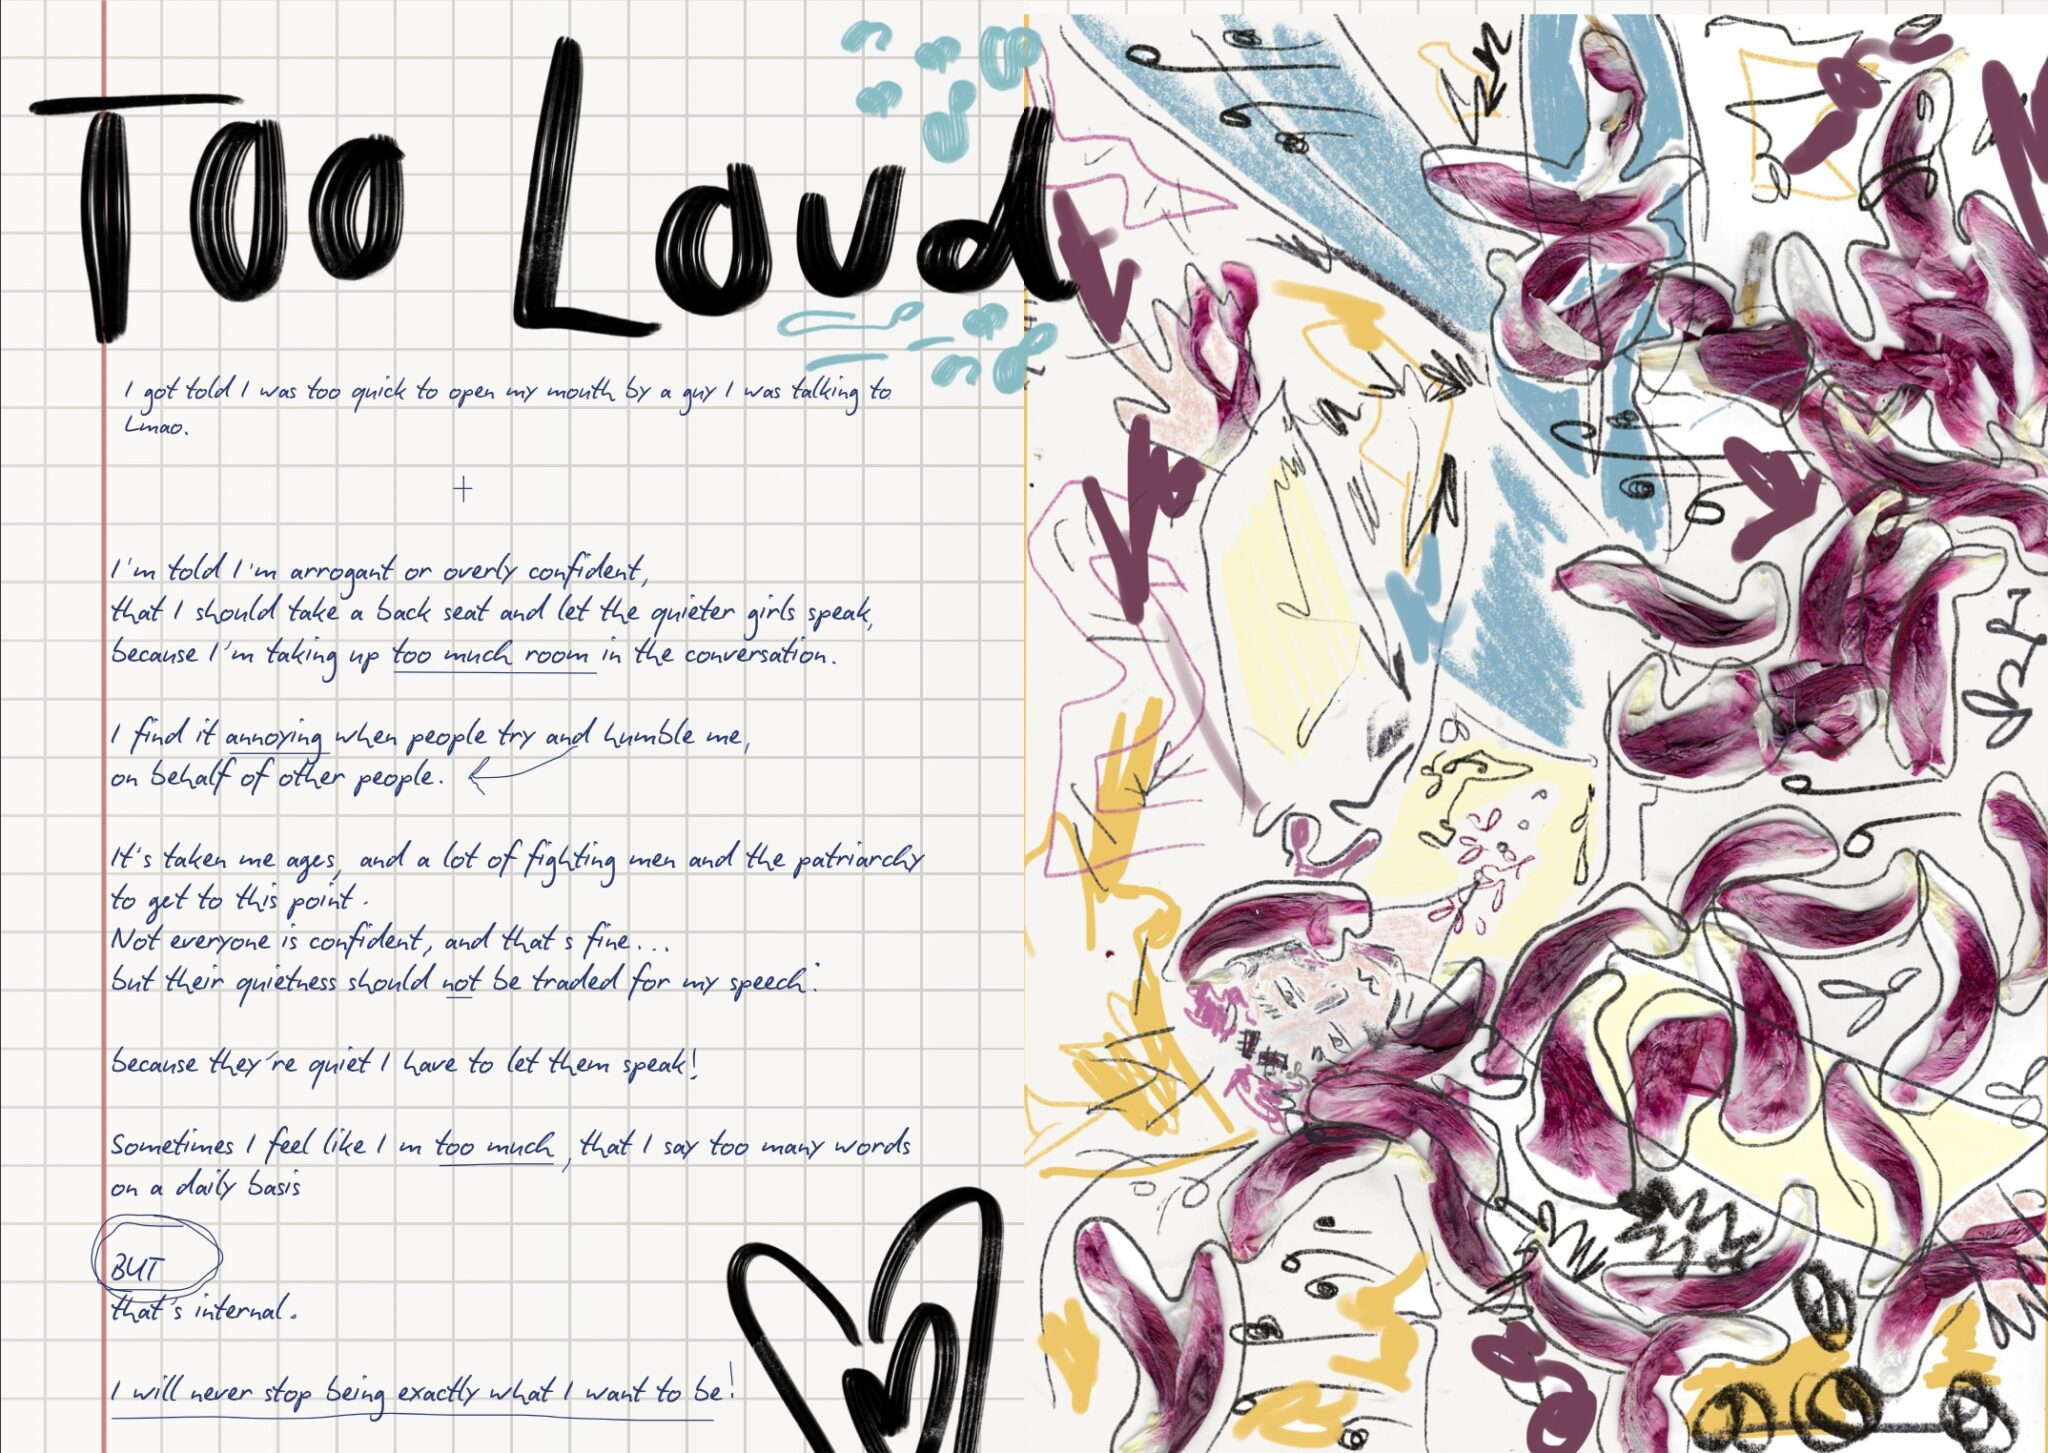 Too Loud
I got told I was too quick to open my mouth by a guy I was talking to
Lmao.
+
I'm told I'm arrogant or overly confident,
that I should take a back seat and let the quieter girls speak,
because I'm taking up too much room in the conversation.
I find it annoying when people try and humble me,
on behalf of other people.
It's taken me ages, and a lot of fighting men and the patriarchy
to get to this point.
Not everyone is confident, and that s fine...
but their quietness should not be traded for my speech:
because they're quiet I have to let them speak!
Sometimes I feel like I m too much, that I say too many words
on a daily basis
BUT
that's internal.
I will never stop being exactly what I want to be!